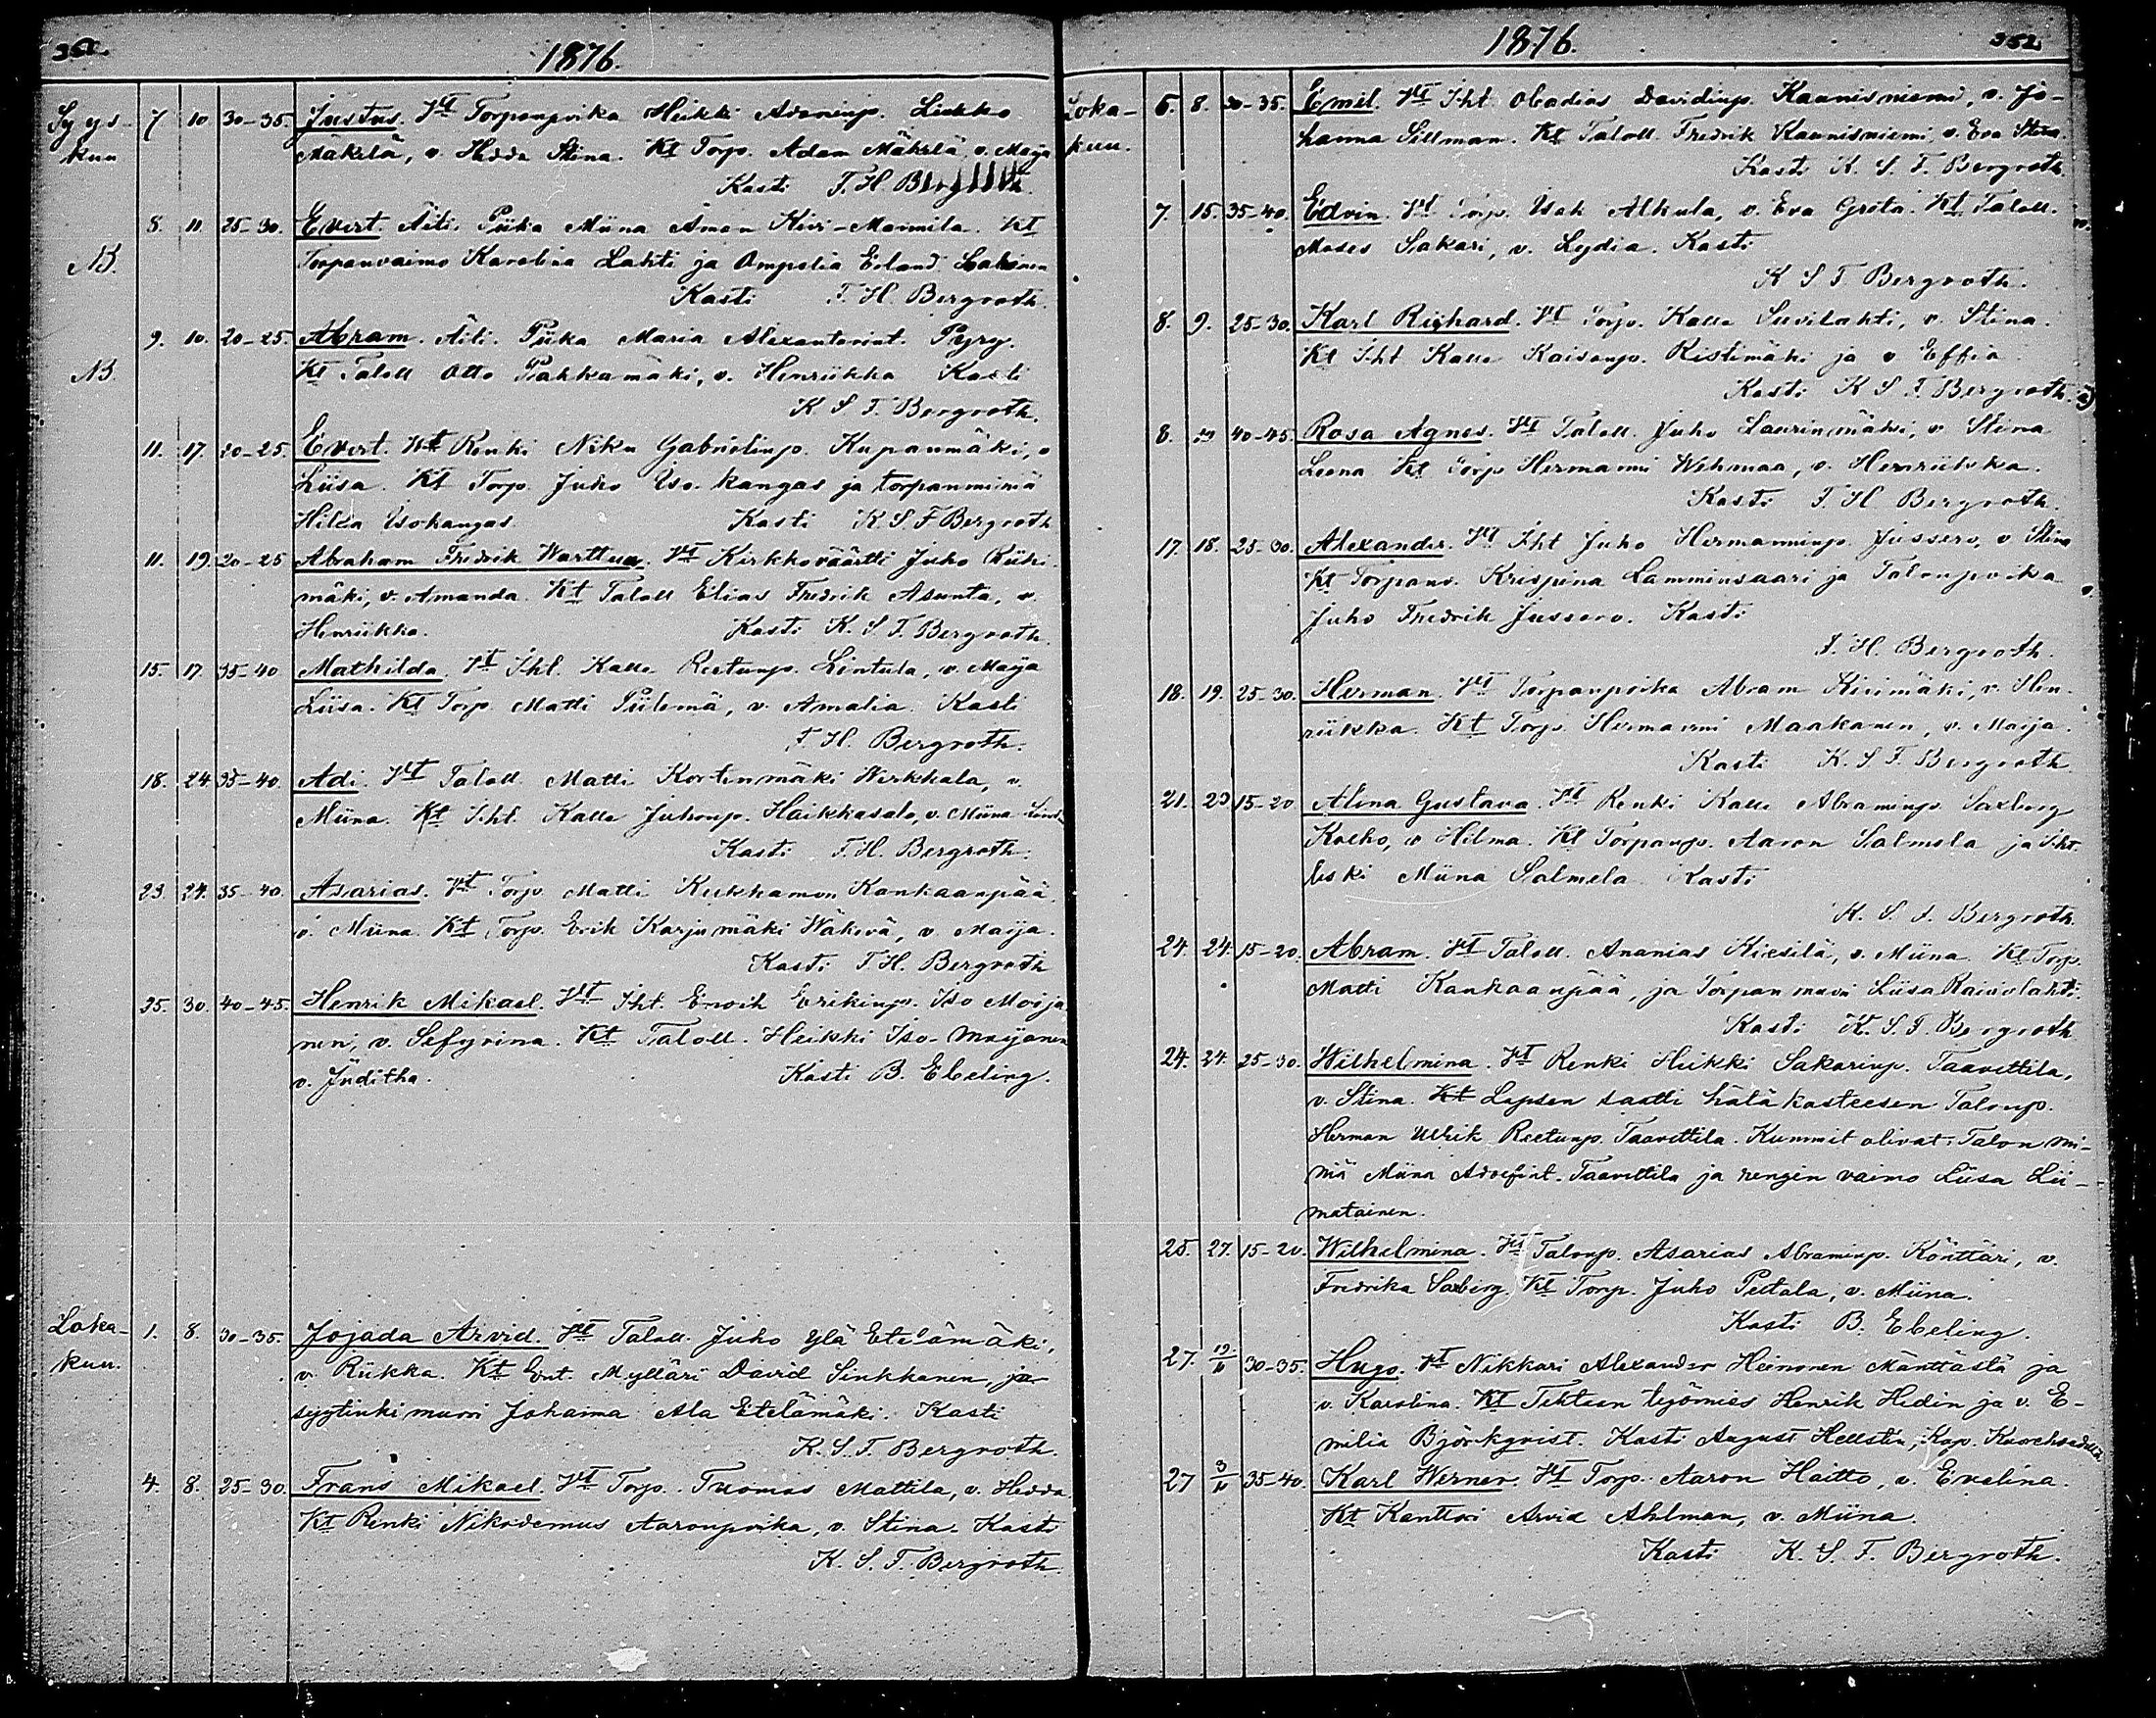 351.
1876.
Syys-
kuu
7 10 30-35. Justus. Vt Torpanpoika Heikki Adaminp. Liukko
Mäkelä, v. Hedda Stina. Kt Torp. Adam Mäkelä, v. Maija
Kasti F. H. Bergroth.
NB.
8. 11 25-30. Evert. Äiti. Piika Miina Kivi-Mannila. Kt
Torpanvaimo Karolina Lahti ja Ompelia Erland
Kasti F. H. Bergroth.
NB.
9. 10. 20-25. Abram. Äiti. Piika Maria Alexanterint. Pyry.
Kt Taloll Otto Pakkamäki, v. Henriikka Kasti
K S F. Bergroth.
11. 17. 20-25. Evert. Vt Renki Niku Gabrielinp. Kupanmäki, v
Liisa. Kt Torp. Juho Iso-kangas ja torpanminiä
Hilda Isokangas. Kasti K. S. F Bergroth
11. 19. 20-25 Abraham Fredrik Warttua. Vt Kirkkoväärtti Juho Riihi-
mäki, v. Amanda. Kt Taloll Elias Fredrik Asunta, v.
Henriikka. Kasti K. S. F. Bergroth.
15. 17. 35-40 Mathilda. Vt Iht. Kalle Reetunp. Lintula, v. Maija
Liisa. Kt Torp. Matti Piilemä, v. Amalia. Kasti
F. H. Bergroth.
18. 24. 35-40. Adi. Vt Taloll. Matti Kortenmäki Wirkkala, v.
Miina. Kt Iht. Kalle Juhonp. Haikkasalo, v. Miina
Kasti F. H. Bergroth.
23. 24. 35-40. Asarias. Vt Torp. Matti Kankaanpää,
v. Miina. Kt Torp. Erik Karjumäki Wäkevä, v. Maija.
Kasti F H. Bergroth
25. 30. 40-45. Henrik Mikael. Vt Iht. Enoch Erikinp. Iso Moija
nen, v. Sefyrina. Kt Taloll. Heikki Iso-Moijanen
v. Juditha. Kasti B. Ebeling.
Loka-
kuu.
1. 8. 30-35. Jojada Arvid. Vt Taloll. Juho Ylä Etelämäki,
v. Riikka. Kt Ent. Mylläri David Sinkkonen, ja
syytinki muori Johanna Ala Etelämäki. Kasti
K. S. F. Bergroth.
4. 8. 25-30. Frans Mikael. Vt Torp. Tuomas Mattila, v. Hedda.
Kt Renki Nikodemus Aaronpoika, v. Stina. Kasti
K. S. F. Bergroth.
1876.
352.
Loka-
kuu.
5. 8. 30-35. Emil. Vt Iht Obadias Davidinp. Kaunisniemi, v. Jo-
hanna Sillman. Kt Taloll Fredrik Kaunisniemi, v. Eva Stina.
Kasti K. S. F. Bergroth.
7. 15. 35-40. Edvin. Vt Torp. Isak Alkula, v. Eva Greta. Kt Taloll.
Moses Sakari, v. Lydia. Kasti
K S F Bergroth.
8. 9. 25-30. Karl Richard. Vt Torp. Kalle Suvilahti, v. Stina.
Kt Iht Kalle Kaisanp. Ristimäki ja v Effia
Kasti K S F Bergroth.
8. 40-45. Rosa Agnes. Vt Taloll. Juho Laurinmäki, v Stina
Leena Kt Torp Hermanni Wehmaa, v. Henriikka.
Kasti F. H Bergroth.
17. 18. 25-30. Alexander. Vt Iht Juho Hermanninp. Jussero, v Stina
Kt Torpanv. Krispina Lamminsaari ja Talonpoika
Juho Fredrik Jussero. Kasti
F. H. Bergroth.
18. 19. 25-30. Herman. Vt Torpanpoika Abram Kivimäki, v. Hen-
riikka. Kt Torp. Hermanni Maakanen, v. Maija.
Kasti K. S. F. Bergroth
21. 29 15-20 Alina Gustava. Vt Renki Kalle Abraminp. Saxberg
Kolho, v Hilma. Kt Torpanp. Aaron Salmela ja Iht.
leski Miina Salmela Kasti
K. S. F. Bergroth.
24. 24. 15-20. Abram. Vt Taloll. Ananias Kiesilä, v. Miina. Kt Torp.
Matti Kankaanpää, ja Torpan muori Liisa Raiviolahti.
Kasti K. S. F. Bergroth
24. 24. 25-30. Wilhelmina. Vt Renki Heikki Sakarinp. Taavettila,
v. Stina. Kt Lapsen saatti hätäkasteesen Talonp.
Herman Ulrik Reetunp. Taavettila. Kummit olivat: Talon mi-
niä Miina Adolfint. Taavettila ja rengin vaimo Liisa Lii-
matainen.
25. 27. 15-20. Wilhelmina. Vt Talonp. Asarias Abraminp. Könttäri, v.
Fredrika Saxberg. Kt Torp. Juho Peltola, v. Miina.
Kasti B. Ebeling.
27. 19/11 30-35. Hugo. Vt Nikkari Alexander Heinonen Mänttästä ja
v. Karolina. Kt Tehtaan työmies Henrik Hedin ja v. E-
milia Björkqvist. Kasti August Hellsten, Kap.
27 3/11 35-40. Karl Werner. Vt Torp. Aaron Haitto, v. Evelina.
Kt Kanttori Arvid Ahlman, v. Miina
Kasti K. S. F. Bergroth.